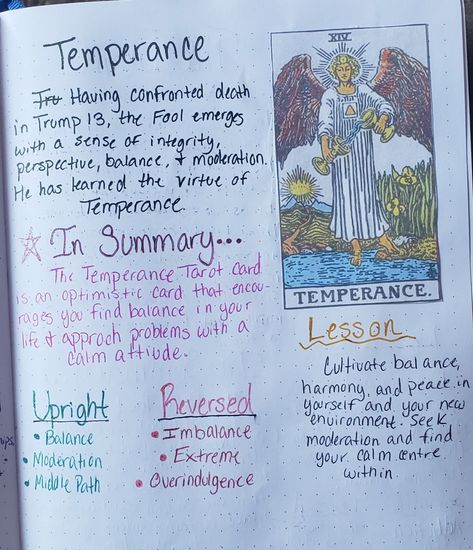 Temperance
Tru Having confronted death
in Trump 13, the Fool emerges
with a sense of integrity,
perspective, balance, + moderation.
He has learned the virtue of
Temperance
In Summary...
The Temperance Tarot card
is an optimistic card that encou-
rages you find balance in your
life + approch problems with a
calm attiude.
Upright
• Balance
• Moderation
• Middle Path
Reversed
• Imbalance
• Extreme
• Overindulgence
XIV
TEMPERANCE.
Lesson
Cultivate balance,
harmony, and peace in
yourself and your new
environment. Seek
moderation and find
your calm centre
within